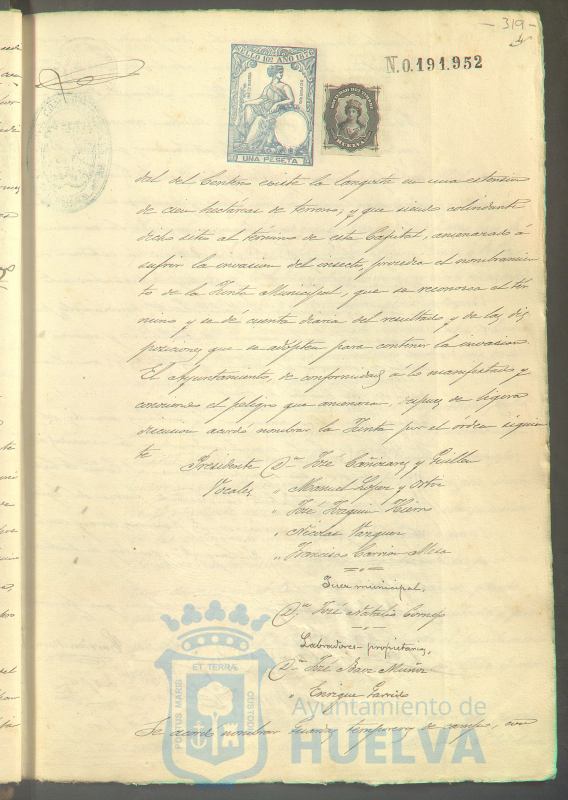 - 319 -
SELLO 10º AÑO 1876
N.0.191.952
UNA PESETA
HUELVA
del del Centeno existe la langosta en una extension
de cien hectáreas de terreno, y que siendo colindante
dicho sitio al término de esta Capital, amenazado á
sufrir la invasion del insecto, procedia el nombramien
to de la Junta Municipal, que se reconozca el tér
mino y se dé cuenta diaria del resultado y de las dis
posiciones que se adopten para contener la invasion.
El Ayuntamiento, de conformidad á lo manifestado y
conociendo el peligro que amenaza, despues de ligera
discusion acordó nombrar la Junta por el órden siguien
te
Presidente Dn José Cañizares y Guillen
Vocales " Manuel Lopez y
" José Joaquin Hierro
" Nicolas Vazquez
" Francisco Carrion Mesa
Juez municipal,
Dn José Natalio Cornejo
Labradores propietarios,
Dn José Baez Muñoz
" Enrique Garrido
Se acordó nombrar Guardas temporeros de campo, con
ET TERRÆ
PORTUS MARIS
CUSTODIA
Ayuntamiento de
HUELVA